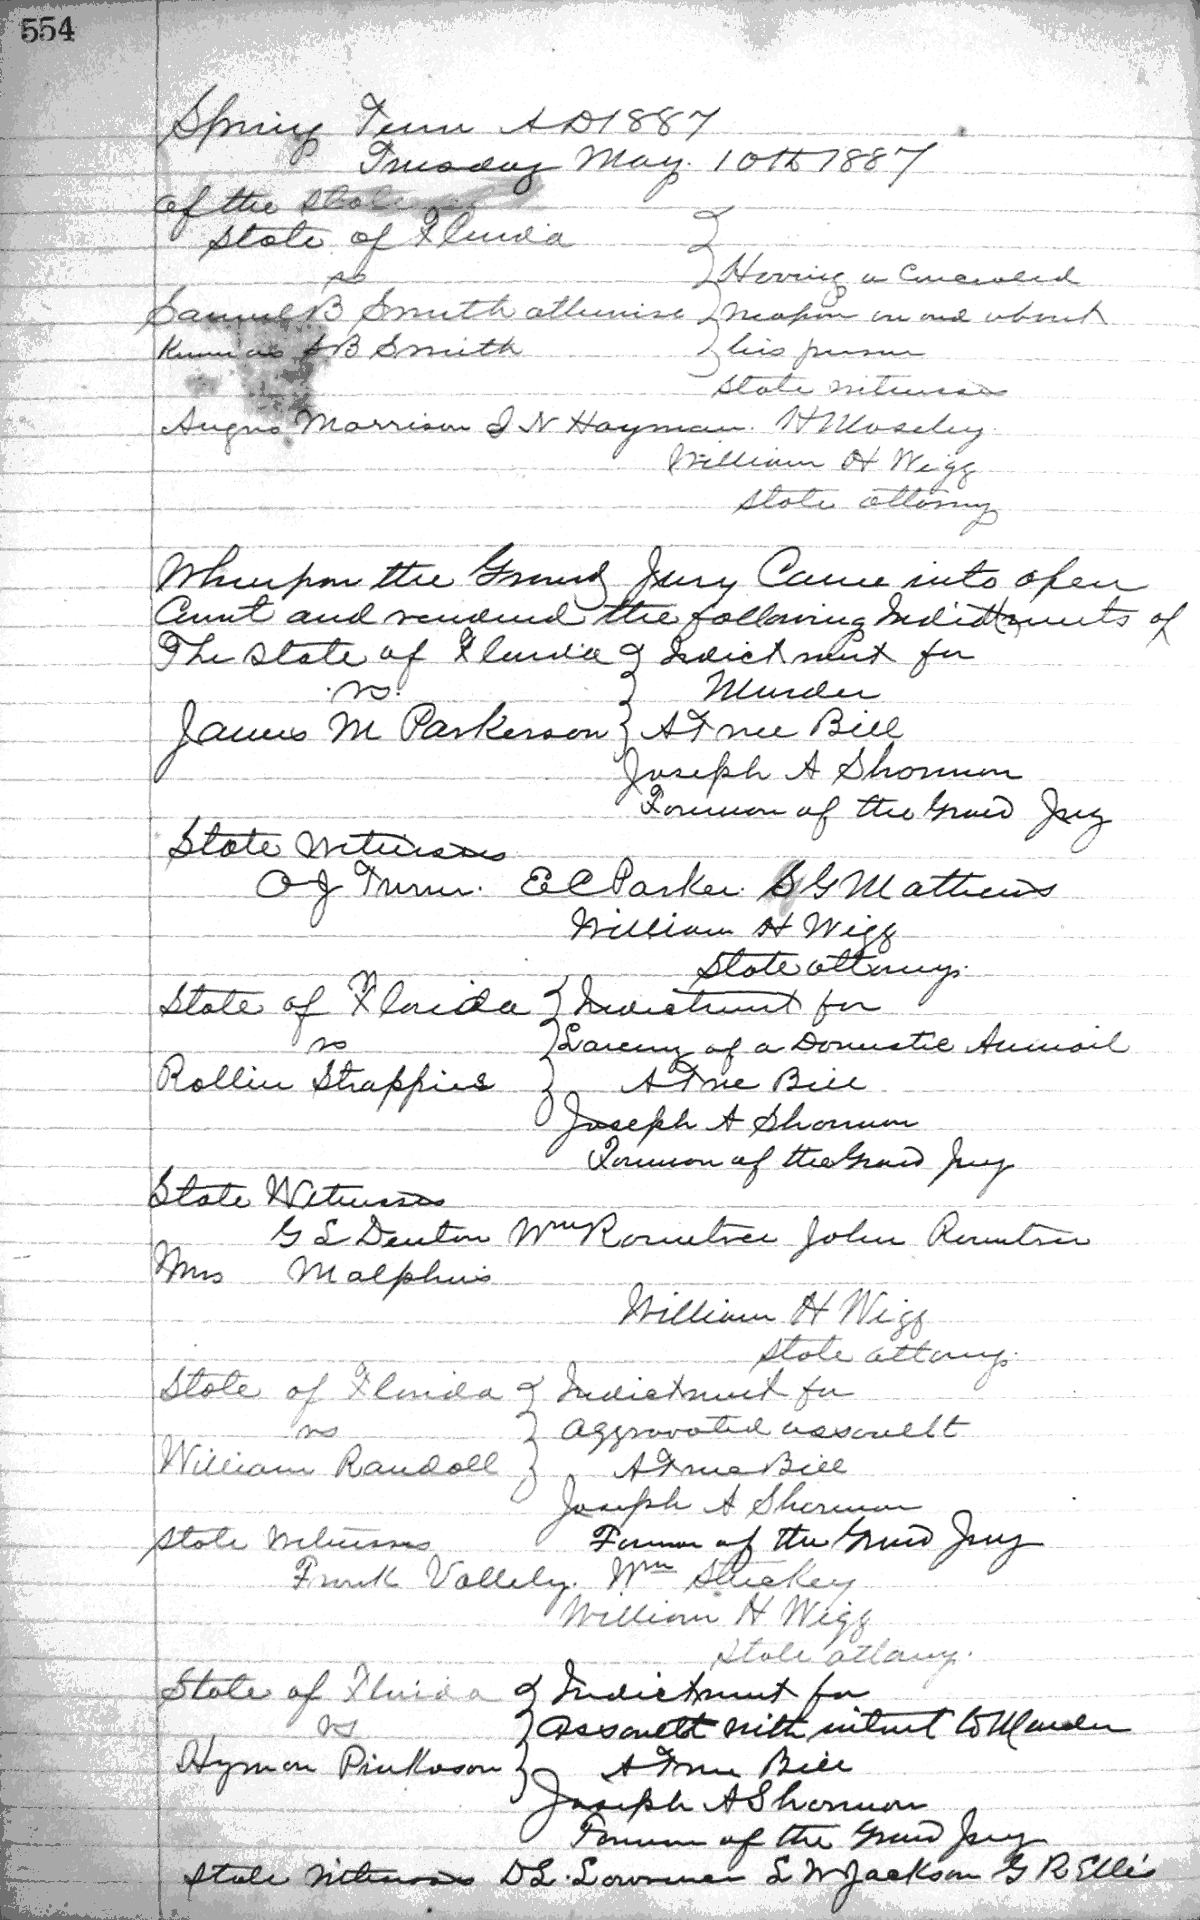 554
Spring Term A D 1887
Tuesday May. 10th 1887
of the State of
State of Florida
vs
Having a Concealed
Samuel B Smith otherwise
Weapon on and about
Known as S B Smith
his person
State witnesses
Angus Morrison J N Hayman. H Moseley.
William H Wigg
State attorney
Whereupon the Grand Jury Came into open
Court and rendered the following Indictments of
The State of Florida } Indictment for
vs. } Murder
James M Parkerson } A True Bill
Joseph A Shormon
Forman of the Grand Jury
State Witnesses
O J Turner. E C Parker. S G Mathews
William H Wigg
State attorney.
State of Florida } Indictment for
vs } Larceny of a Domestic Animail
Rollin Strappins } A True Bill
Joseph A Shormon
Forman of the Grand Jury
State Witnesses
G L Denton Wm Rountree John Rountree
Mrs Malphus
William H Wigg
State attorney.
State of Florida } Indictment for
vs } Aggrovated assault
William Randall } A True Bill
Joseph A Shormon
State Witnesses Forman of the Grand Jury
Frank Vallely. Wm Stuckey
William H Wigg
State attorney.
State of Florida } Indictment for
vs } Assault with intent to Murder
Hyman Pinkoson } A True Bill
Joseph A Shormon
Forman of the Grand Jury
State Witnesses D L. Lowrimer L W Jackson G R Ellis